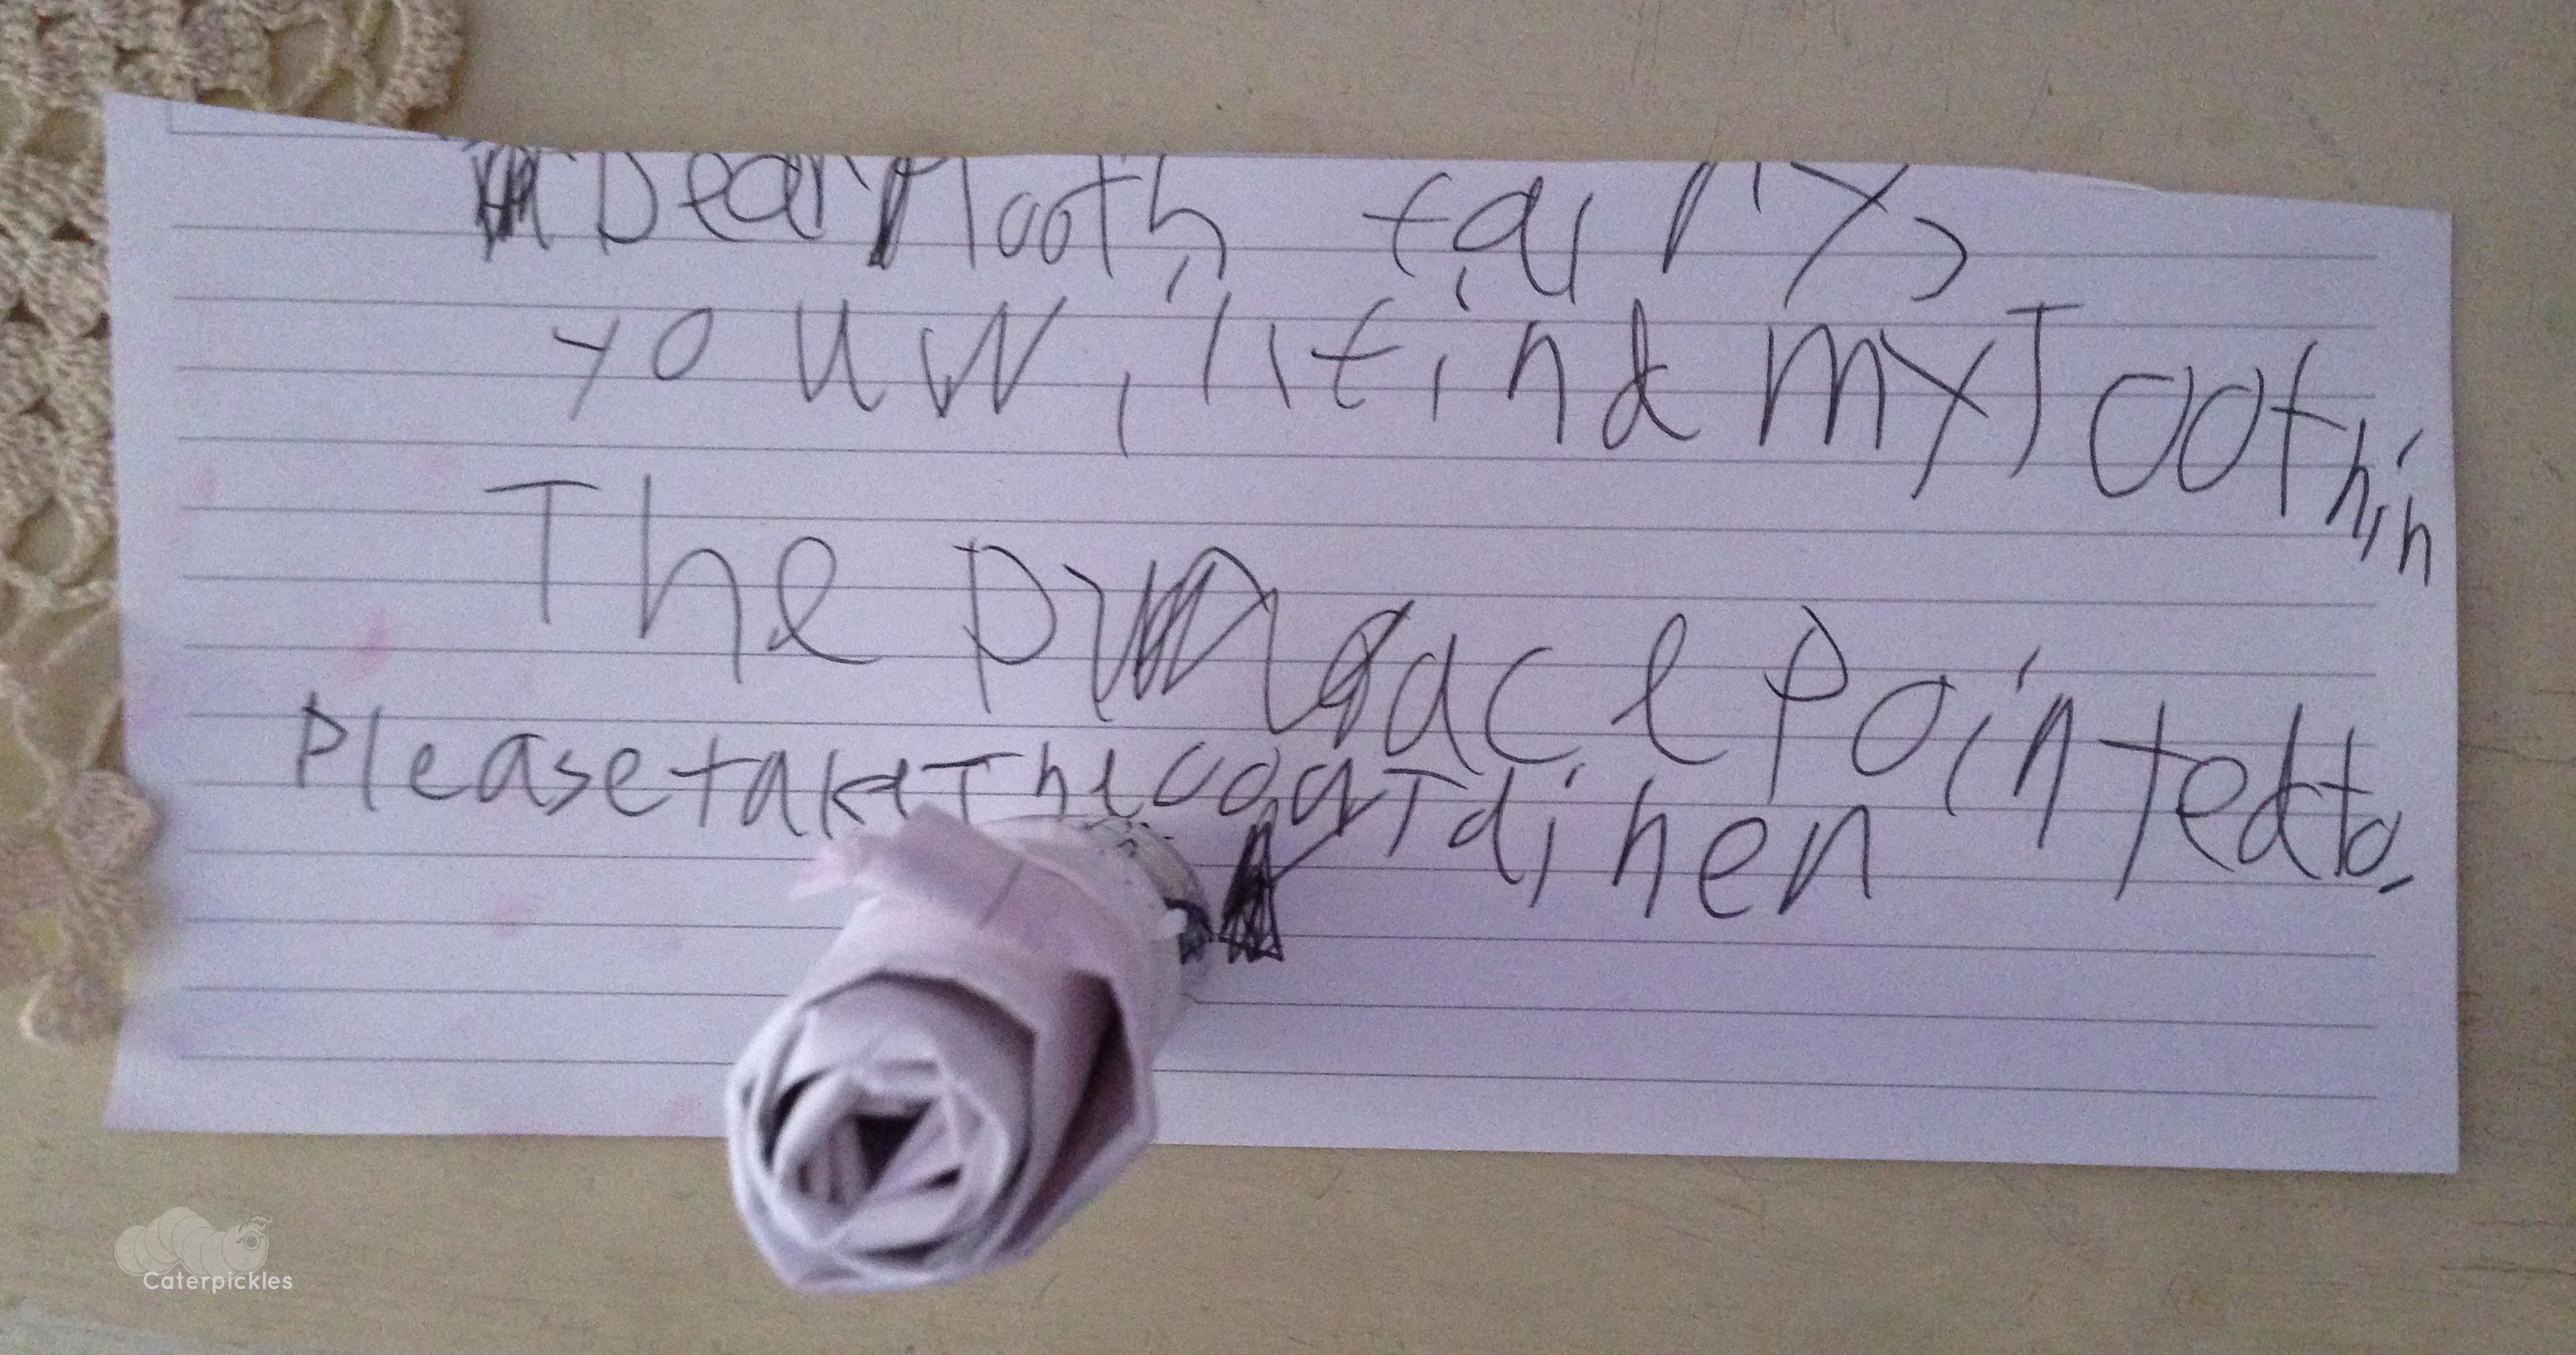 Dear Tooth fairy,
you will find my Tooth in
The place Pointed to.
Please take The coat dinen
Caterpickles